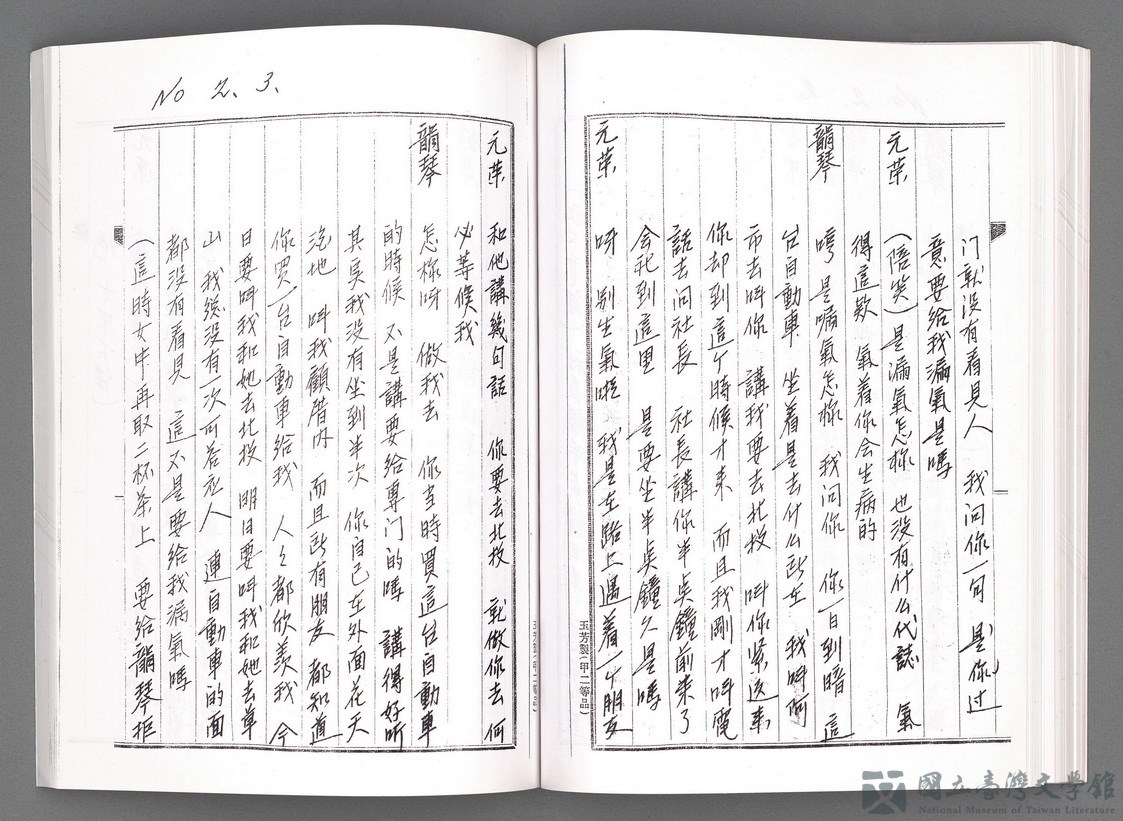 门就没有看見人 我问你一句 是你过
意要给我漏氣是嗎
元荣 (陪笑) 是漏氣怎樣 也没有什么代誌 氣
得這款 氣着你会生病的
韻琴 哼 是嘛氣怎樣 我问你 你一日到暗 這
台自動車 坐着是去什么所在 我叫阿
市去叫你 講我要去北投 叫你紧返来
你却到這个時候才来 而且我剛才叫電
話去问社長 社長講你半点鐘前来了
会社到這里 是要坐半点鐘久是嗎
元荣 呀 别生氣啦 我是在路上遇着一个朋友
No 2、3、
元荣 和他講幾句話 你要去北投 就做你去 何
必等候我
韻琴 怎樣呀 做我去 你当時買這台自動車
的時候 不是講要给專门的嗎 講得好听
其实我没有坐到半次 你自己在外面花天
酒地 叫我顧厝内 而且所有朋友 都知道
你買一台自動車给我 人々都欣羡我 今
日要叫我和她去北投 明日要叫我和她去草
山 我總没有一次可答应人 連自動車的面
都没有看見 這不是要给我漏氣嗎
(這時女中再取二杯茶上 要给韻琴拒
玉芳製(甲二等品)
玉芳製(甲二等品)
國立臺灣文學館
National Museum of Taiwan Literature